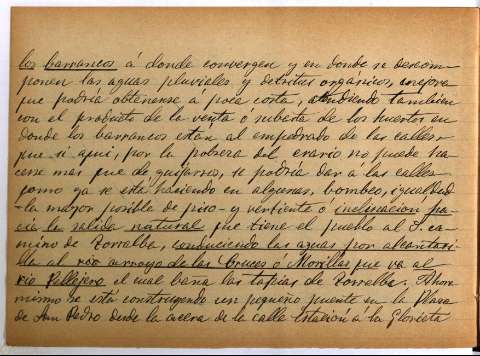 los barrancos á donde convergen y en donde se descom-
ponen las aguas pluviales y detritus orgánicos, mejora
que podría obtenerse á poca costa, atendiendo tambien
con el producto de la venta o subasta de los huertos en
donde los barrancos están al empedrado de las calles,
que si aqui, por la pobreza del erario no puede ha-
cerse mas que de guijarros, se podría dar a las calles
como ya se está haciendo en algunas, bombeo, igualdad
-la mayor posible de piso- y vertiente ó inclinacion ha-
cia la salida natural que tiene el pueblo al S. ca-
mino de Torralba, conduciendo las aguas por alcantari-
lla al rio arroyo de las Cruces ó Morillas que va al
rio Pellejero el cual baña las tapias de Torralba. Ahora
mismo se está construyendo un pequeño puente en la Plaza
de San Pedro desde la acera de la calle Estación á la Glorieta